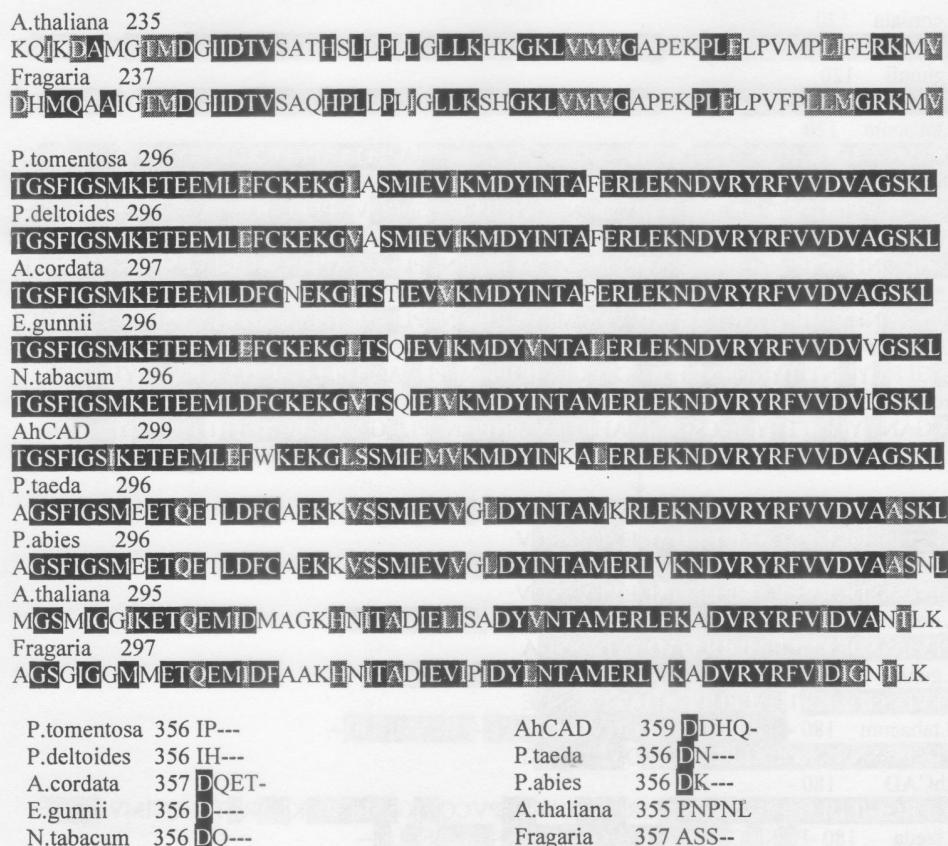 A.thaliana 235
KQIKDAMGTMDGIIDTVSATHSLLPLLGLLKHKGKLVMVGAPEKPLELPVMPLIFERKMV
Fragaria 237
DHMQAAIGTMDGIIDTVSAQHPLLPLIGLLKSHGKLVMVGAPEKPLELPVFPLLMGRKMV
P.tomentosa 296
TGSFIGSMKETEEMLEFCKEKGLASMIEVIKMDYINTAFERLEKNDVRYRFVVDVAGSKL
P.deltoides 296
TGSFIGSMKETEEMLEFCKEKGVASMIEVIKMDYINTAFERLEKNDVRYRFVVDVAGSKL
A.cordata 297
TGSFIGSMKETEEMLDFCNEKGITSTIEVVKMDYINTAFERLEKNDVRYRFVVDVAGSKL
E.gunnii 296
TGSFIGSMKETEEMLEFCKEKGLTSQIEVIKMDYVNTALERLEKNDVRYRFVVDVVGSKL
N.tabacum 296
TGSFIGSMKETEEMLDFCKEKGVTSQIEIVKMDYINTAMERLEKNDVRYRFVVDVIGSKL
AhCAD 299
TGSFIGSIKETEEMLEFWKEKGLSSMIEMVKMDYINKALERLEKNDVRYRFVVDVAGSKL
P.taeda 296
AGSFIGSMEETQETLDFCAEKKVSSMIEVVGLDYINTAMKRLEKNDVRYRFVVDVAASKL
P.abies 296
AGSFIGSMEETQETLDFCAEKKVSSMIEVVGLDYINTAMERLVKNDVRYRFVVDVAASNL
A.thaliana 295
MGSMIGGIKETQEMIDMAGKHNITADIELISADYVNTAMERLEKADVRYRFVIDVANTLK
Fragaria 297
AGSGIGGMMETQEMIDFAAKHNITADIEVIPIDYLNTAMERLVKADVRYRFVIDIGNTLK
P.tomentosa 356 IP---
P.deltoides 356 IH---
A.cordata 357 DQET-
E.gunnii 356 D----
N.tabacum 356 DQ---
AhCAD 359 DDHQ-
P.taeda 356 DN---
P.abies 356 DK---
A.thaliana 355 PNPNL
Fragaria 357 ASS--